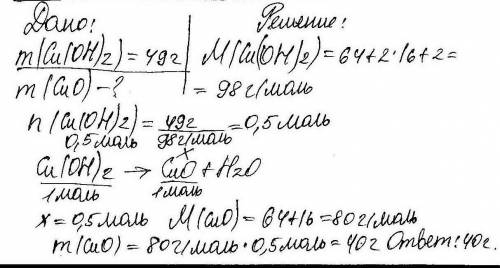 Дано: Решение:
m(Cu(OH)2)=49г M(Cu(OH)2)=64+2·16+2=
m(CuO)-? =98г/моль
n(Cu(OH)2)=49г/98г/моль=0,5моль
0,5моль x
Cu(OH)2 → CuO+H2O
1моль 1моль
x=0,5моль M(CuO)=64+16=80г/моль
m(CuO)=80г/моль·0,5моль=40г Ответ:40г.